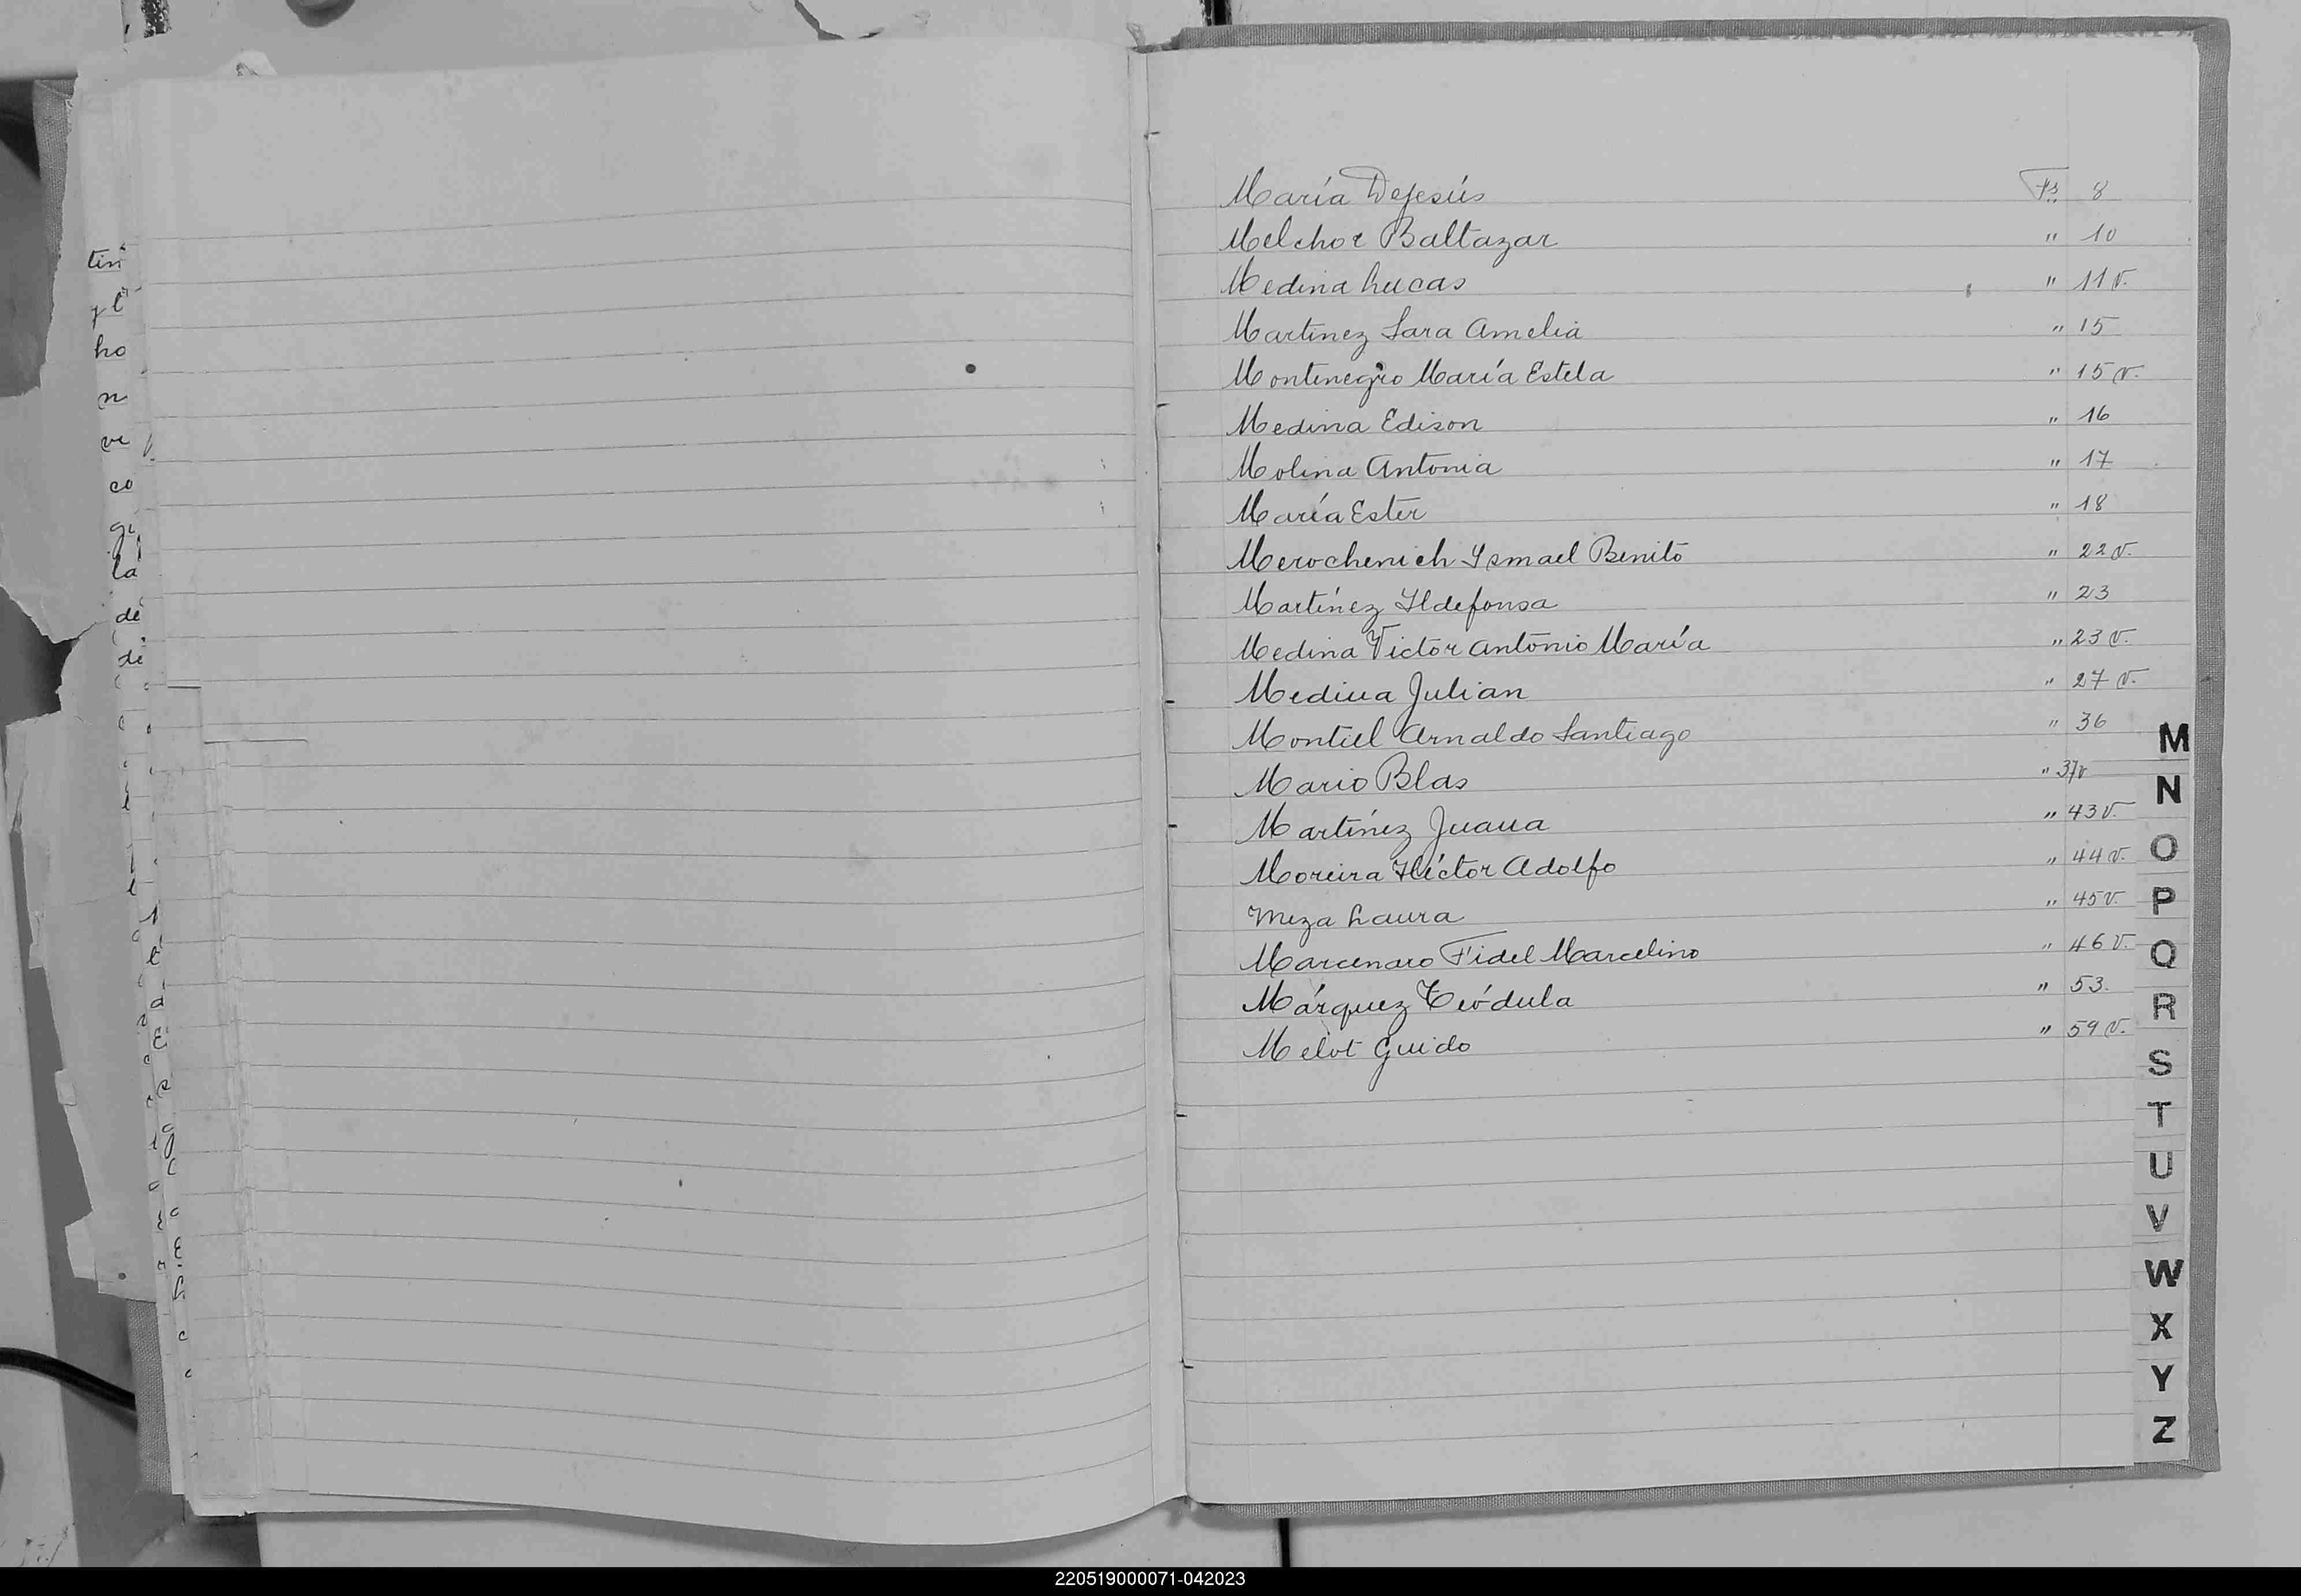 María Dejesús Fs. 8
Melchor Baltazar " 10
Medina Lucas " 11 v.
Martinez Sara Amelia " 15
Montenegro María Estela " 15 v.
Medina Edison " 16
Molina Antonia " 17
María Ester " 18
Merochenich Ismael Benito " 22 v.
Martínez Ildefonsa " 23
Medina Victor Antonio María " 23 v.
Medina Julian " 27 v.
Montiel Arnaldo Santiago " 36
Mario Blas " 37v
Martínez Juana " 43 v.
Moreira Héctor Adolfo " 44 v.
Meza Laura " 45 v.
Marcenaro Fidel Marcelino " 46 v.
Márquez Teódula " 53.
Melot Guido " 59 v.
M
N
O
P
Q
R
S
T
U
V
W
X
Y
Z
220519000071-042023